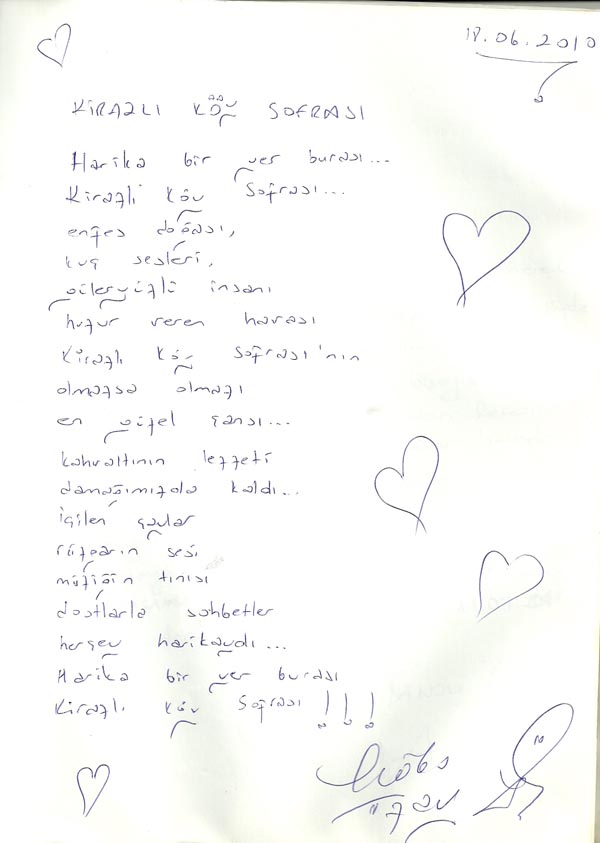 18.06.2010
KİRAZLI KÖY SOFRASI
Harika bir yer burası...
Kirazlı Köy Sofrası...
enfes doğası,
kuş sesleri,
güleryüzlü insanı
huzur veren havası
Kirazlı Köy Sofrası'nın
olmazsa olmazı
en güzel şansı...
kahvaltının lezzeti
damağımızda kaldı...
içilen çaylar
rüzgarın sesi
müziğin tınısı
dostlarla sohbetler
herşey harikaydı...
Harika bir yer burası
Kirazlı Köy Sofrası !!!
Tuğba
Özay